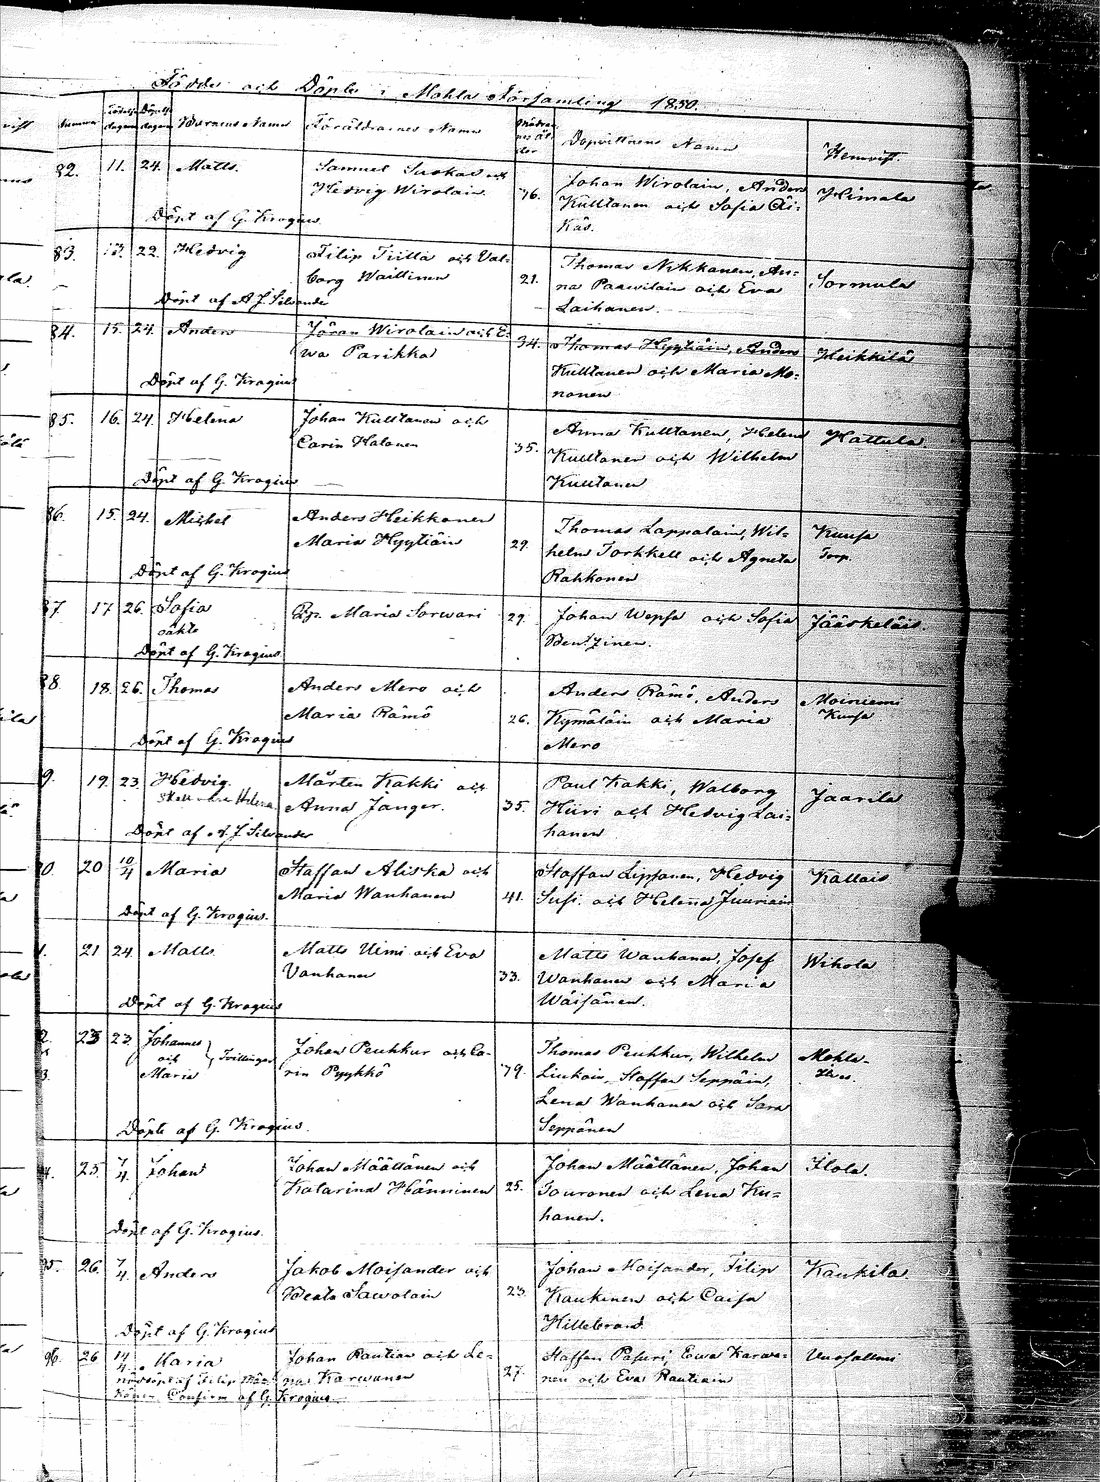 Födde och Döpte i Mohla Församling 1850.
Födelse dagen Döpelse dagen Barnens Namn Föräldrarnes Namn Dopvittnens Namn Hemvist.
82. 11. 24. Matts. Samuel Suskas och Johan Wirolain, Anders Himala
Hedvig Wirolain 36. Kulttanen och Sofia Äi-
Döpt af G. Krogius käs.
83. 13. 22. Hedvig Filip Tvilla och Val- Thomas Nykkanen, An- Sormula
borg Waittinen 21. na Paawilain och Eva
Döpt af A. J. Silvander Laihanen.
84. 15. 24. Anders Jöran Wirolain och E- 34. Thomas Hyytiäin, Anders Heikkilä
wa Parikka Kulttanen och Maria Mo-
Döpt af G. Krogius nonen
85. 16. 24. Helena Johan Kulttanen och Anna Kulttanen, Helena Hattula
Carin Halonen 35. Kulttanen och Wilhelm
Döpt af G. Krogius Kulttanen
86. 15. 24. Michel Anders Heikkonen Thomas Lappalain, Wil- Kuusa
Maria Hyytiäin 29. helm Torkkell och Agneta Torp.
Döpt af G. Krogius Rahkonen
87. 17. 26. Sofia Maria Sorwari 29. Johan Wepsä och Sofia Jääskeläis.
oäkta Bentzinen.
Döpt af G. Krogius
88. 18. 26. Thomas Anders Mero och Anders Rämö, Anders Moiniemi
Maria Rämö 26. Kymäläin och Maria Kunsa
Döpt af G. Krogius Mero
9. 19. 23. Hedvig. Mårten Kakki och Paul Kakki, Walborg Jaarila
Helena Anna Janger. 35. Hiiri och Hedvig Lai-
Döpt af A. J. Silvander hanen
0. 20 10/4 Maria Staffan Aliska och Staffan Lipsanen, Hedvig Kallais
Maria Wanhanen 41. Susi och Helena Juuriain
Döpt af G. Krogius.
1. 21 24. Matts Matts Uimi och Eva Matts Wanhanen, Josef Wikola
Vanhanen 33. Wanhanen och Maria
Döpt af G. Krogius Wäisänen.
2. 23 23. Johannes Johan Peuhkur och Ca- Thomas Peuhkur, Wilhelm Mohla-
och Tvillingar rin Pyykkö 79. Liukoin, Staffan Seppäin,
3. Maria Lena Wanhanen och Sara
Döpte af G. Krogius. Seppänen
4. 25. 7/4. Johan Johan Määttänen och Johan Määttänen, Johan Ilola.
Katarina Hänninen 25. Touronen och Lena Ku-
Döpt af G. Krogius. hanen.
95. 26. 7/4. Anders Jakob Moisander och Johan Moisander, Filip Kaukila
Beata Sawolain 23. Kaukinen och Caisa
Döpt af G. Krogius Hillebrand.
96. 26 14/4. Maria Johan Rautiain och Le- Staffan Pasuri, Ewa Karwa- Vuosalmi
nöddöpt af Filip na Karwanen 27. nen och Eva Rautiain
Confirm. af G. Krogius